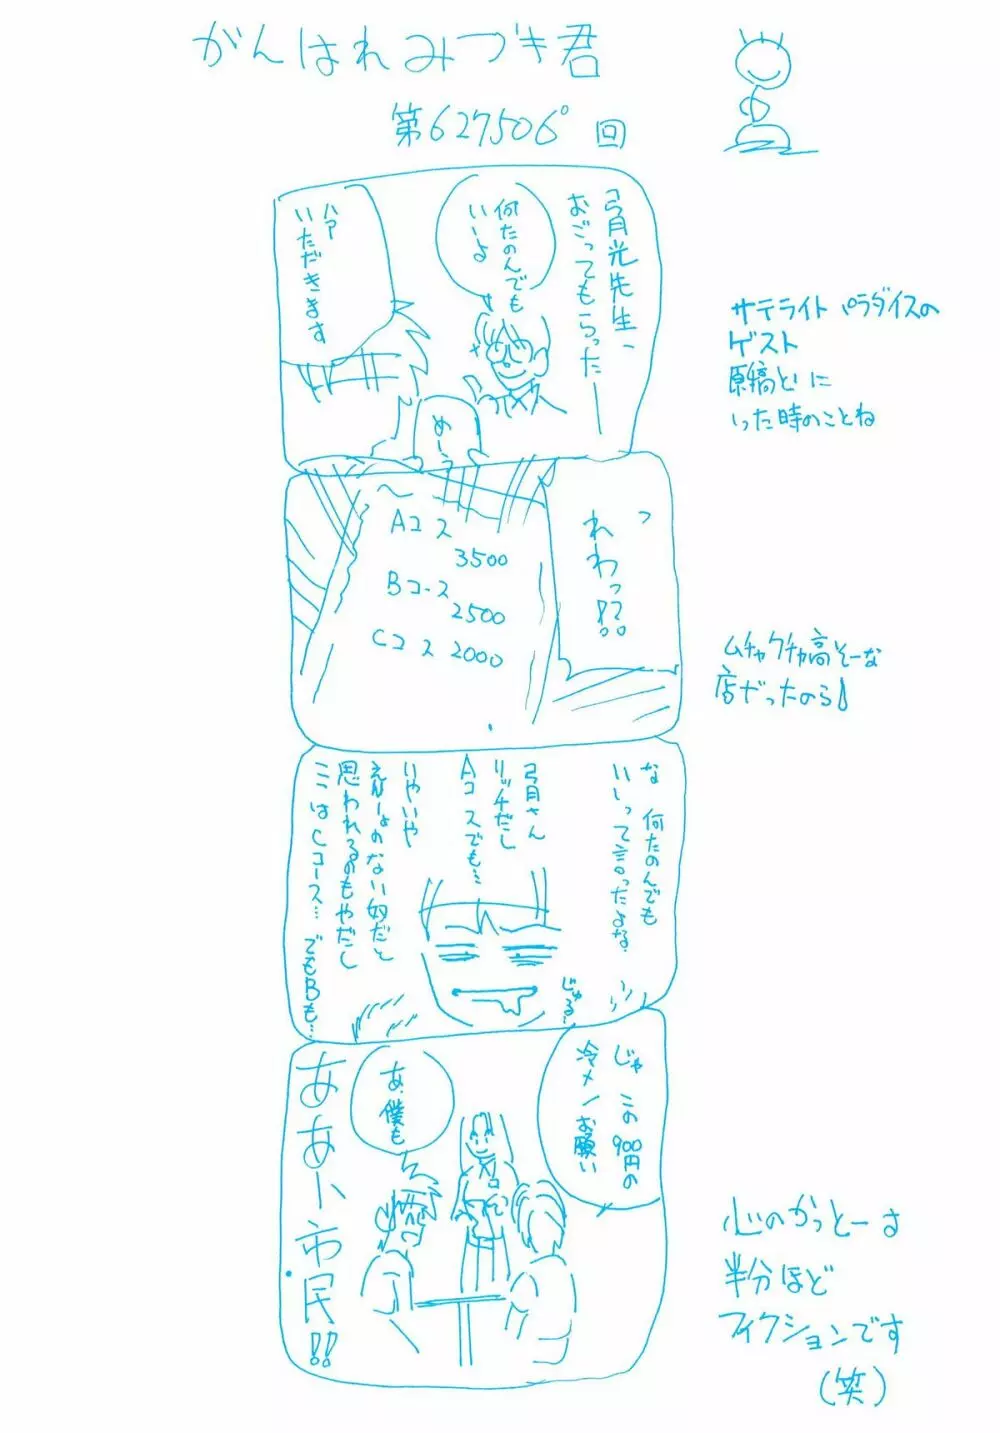 がんばれみづき君
第627506°回
弓月光先生、
おごってもらったー
何たのんでも
いーよ
ハァ
いただきます
めーう
サテライトパラダイスの
ゲスト
原稿といに
いった時のことね
っ
れわっ!?
Aコス
3500
Bコース
2500
Cコス 2000
ムチャクチャ高そーな
店だったのら
な 何たのんでも
いいって言ったよな
弓月さん
リッチだし
Aコスでも…
いやいや
えんりょのない奴だと
思われるのもやだし
ここはCコース… でもBも…
じゅる…
じゃ この900円の
冷メンお願い
あ、僕も
ああ、市民!!
心のかっとーは
半分ほど
フィクションです
(笑)